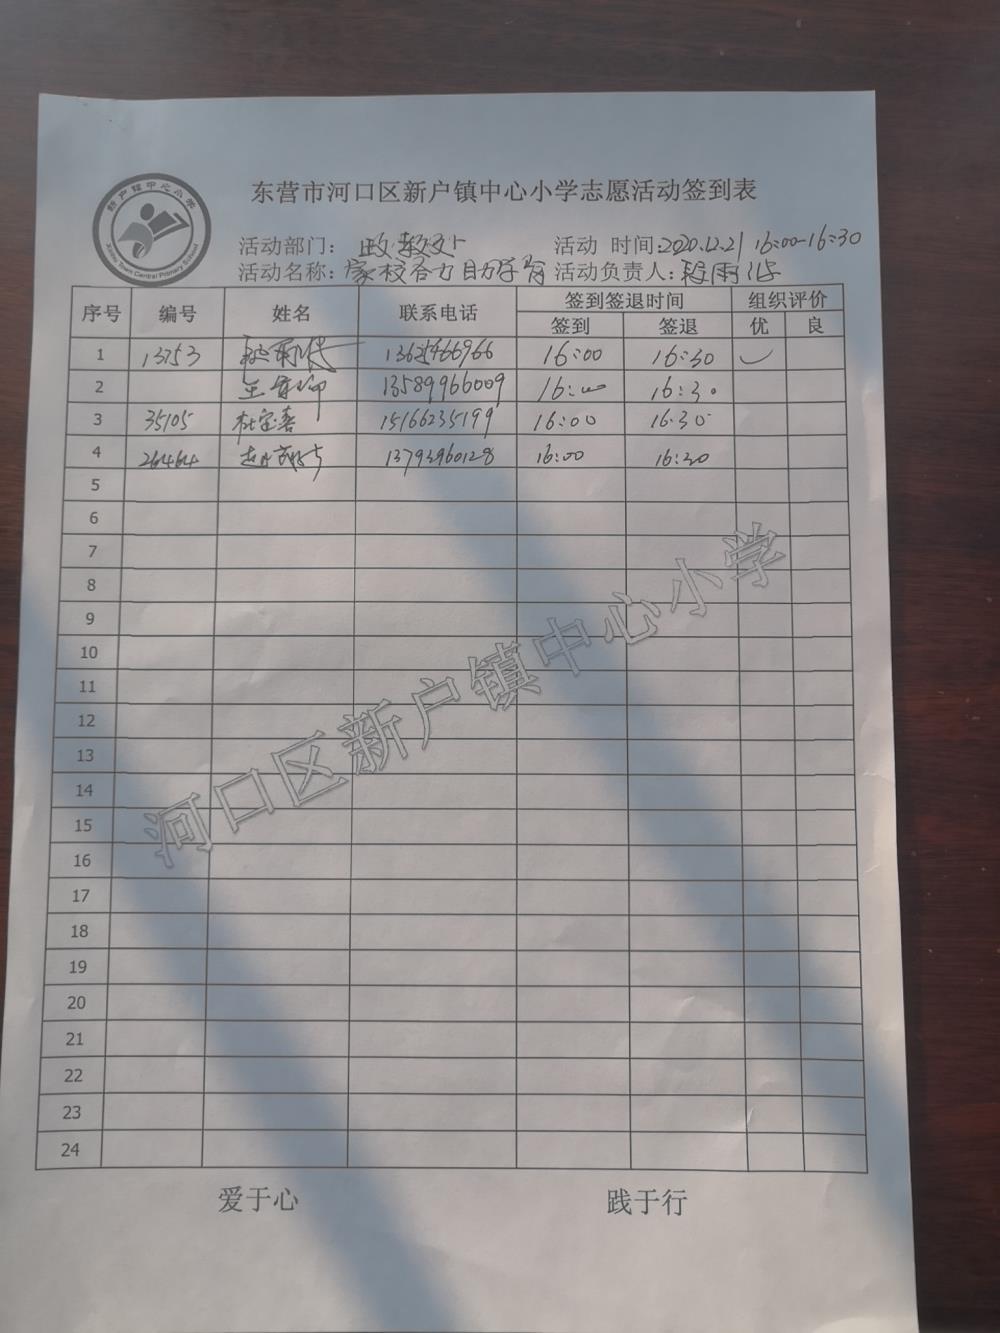 新户镇中心小学
Xinhu Town Central Primary School
东营市河口区新户镇中心小学志愿活动签到表
活动部门： 政教处 活动 时间:2020.12.21 16:00-16:30
活动名称：家校合力助学 活动负责人：
序号 编号 姓名 联系电话 签到签退时间 组织评价
签到 签退 优 良
1 13753 13625466966 16:00 16:30 ✓
2 13589966009 16:00 16:30
3 35105 杜宝喜 15166235199 16:00 16:30
4 26464 13793960128 16:00 16:30
5
6
7
8
9
10
11
12
13
14
15
16
17
18
19
20
21
22
23
24
河口区新户镇中心小学
爱于心 践于行